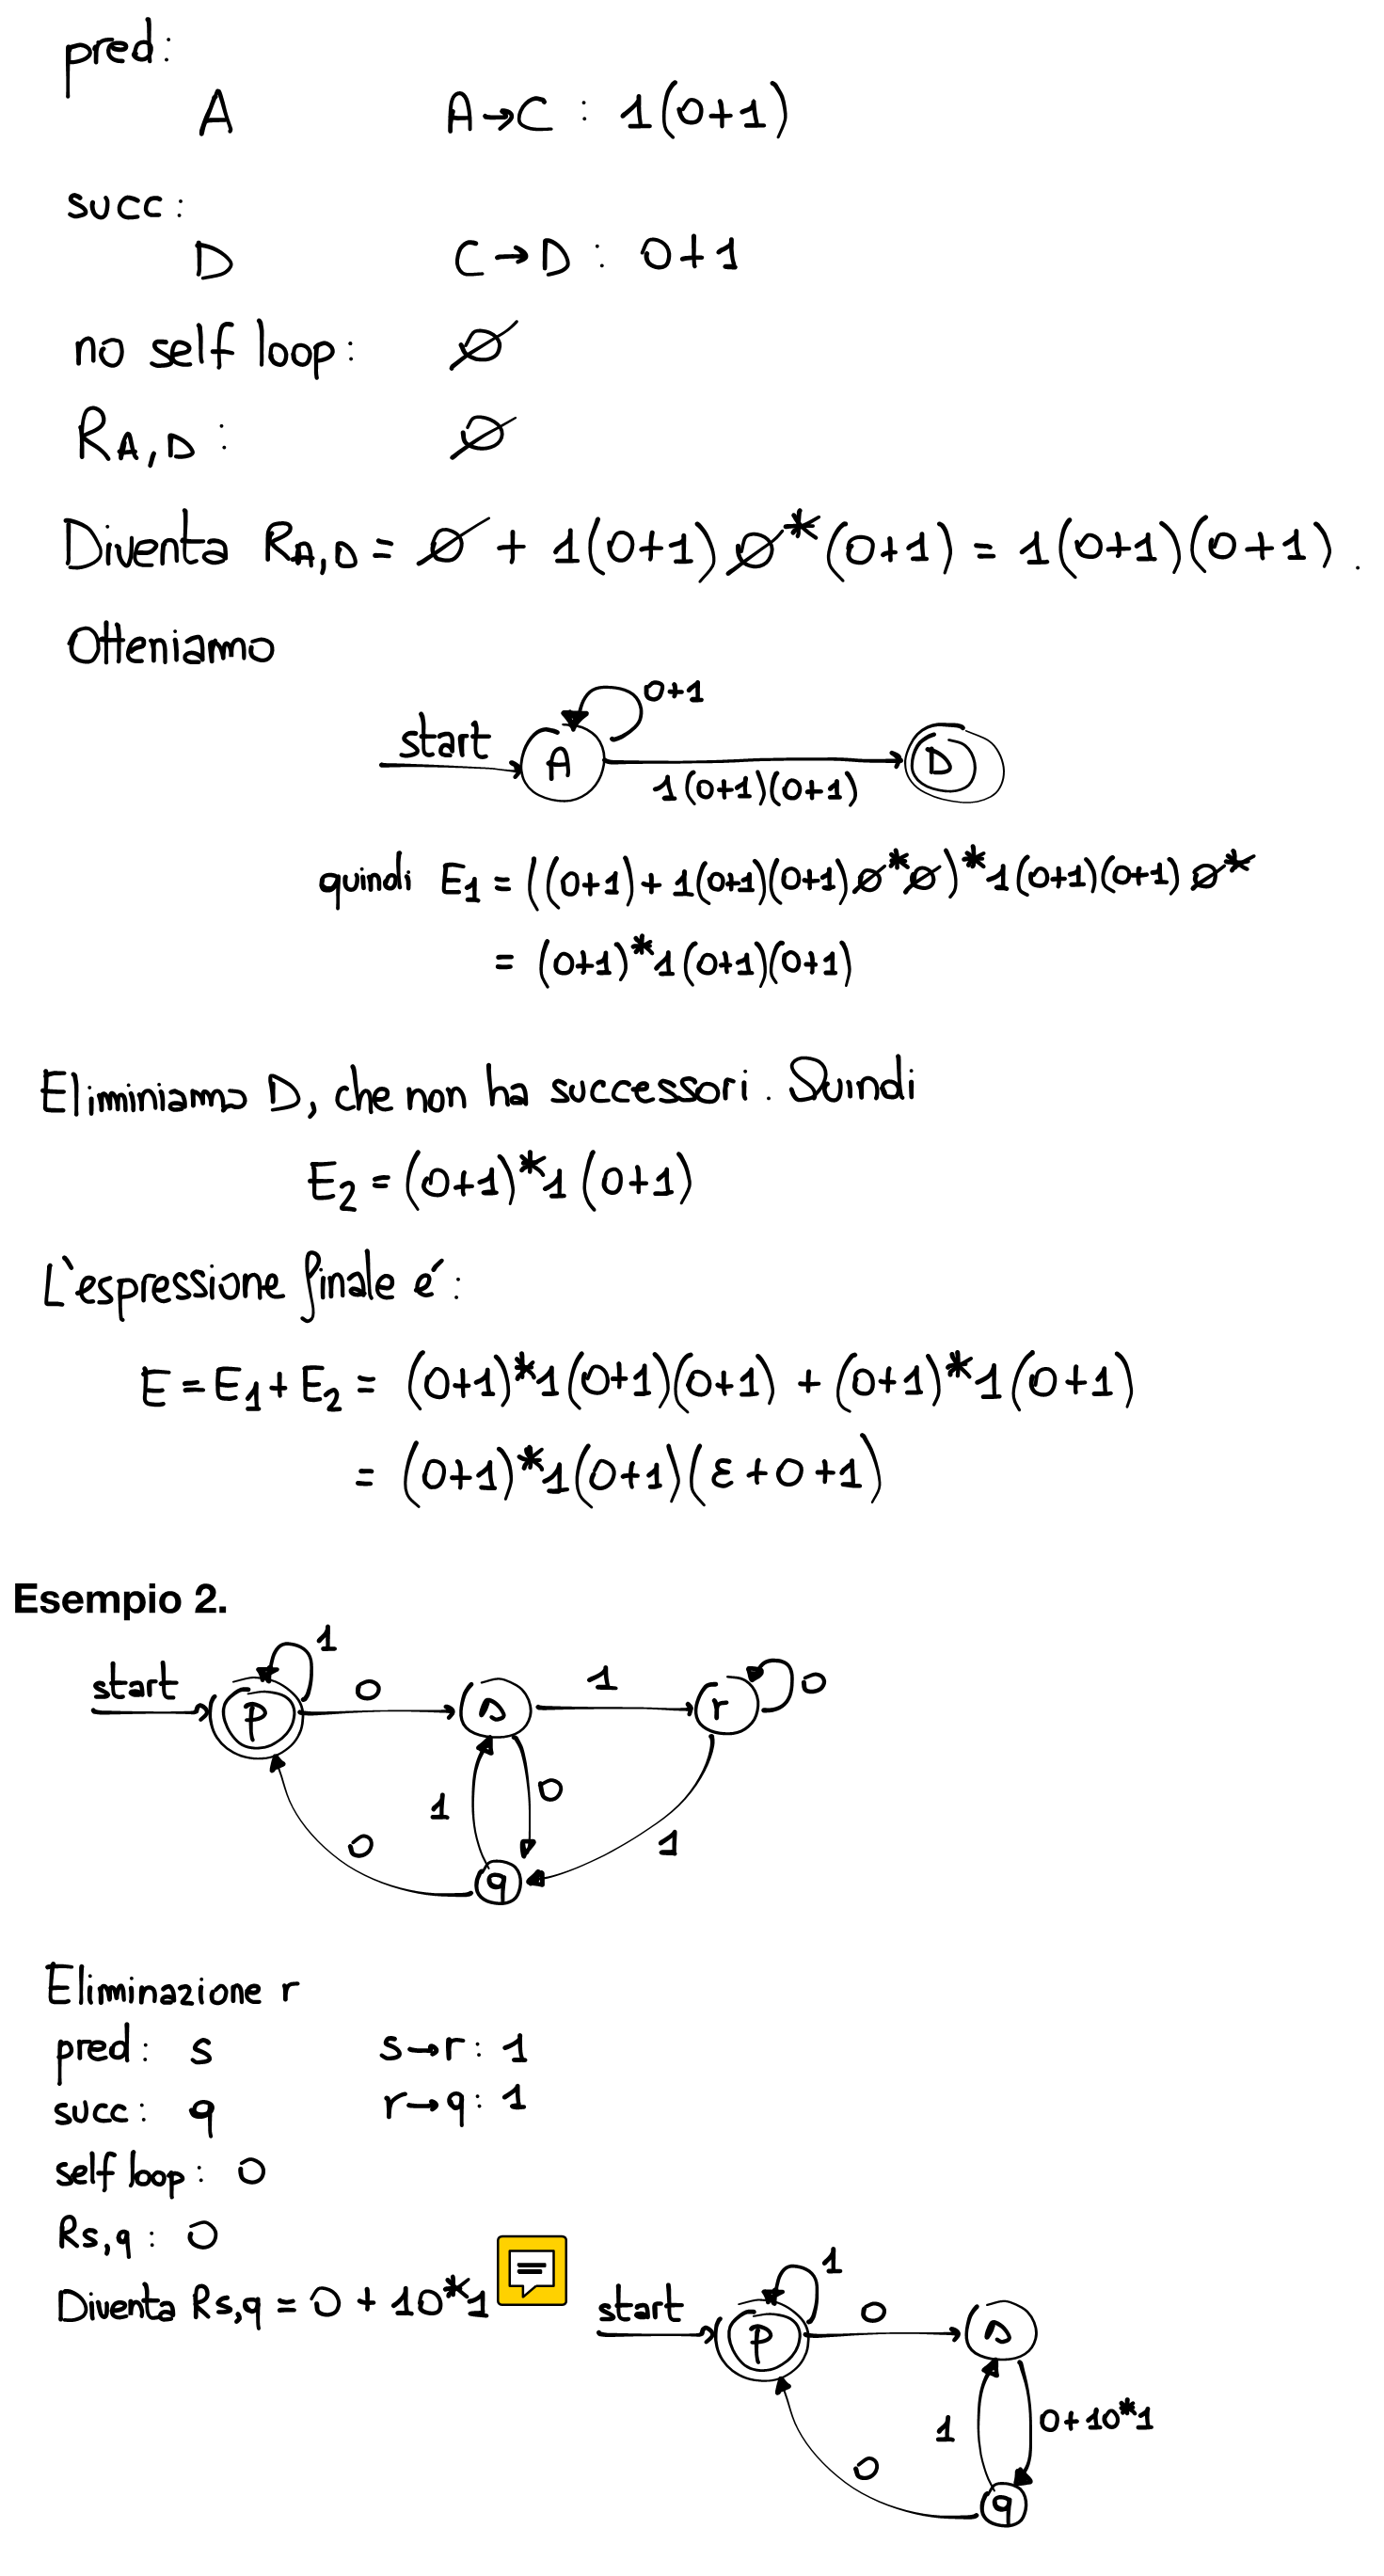 pred:
A A→C : 1(0+1)
succ:
D C→D : 0+1
no self loop: ∅
R_A,D : ∅
Diventa R_A,D = ∅ + 1(0+1)∅*(0+1) = 1(0+1)(0+1).
Otteniamo
0+1
start A D
1(0+1)(0+1)
quindi E₁ = ((0+1)+1(0+1)(0+1)∅*∅)*1(0+1)(0+1)∅*
= (0+1)*1(0+1)(0+1)
Eliminiamo D, che non ha successori. Quindi
E₂ = (0+1)*1(0+1)
L'espressione finale é:
E = E₁ + E₂ = (0+1)*1(0+1)(0+1) + (0+1)*1(0+1)
= (0+1)*1(0+1)(ε+0+1)
Esempio 2.
1
start p 0 s 1 r 0
1 0
0 1
q
Eliminazione r
pred: s s→r: 1
succ: q r→q: 1
self loop: 0
Rs,q: 0
Diventa Rs,q = 0 + 10*1
1
start p 0 s
1 0+10*1
0
q